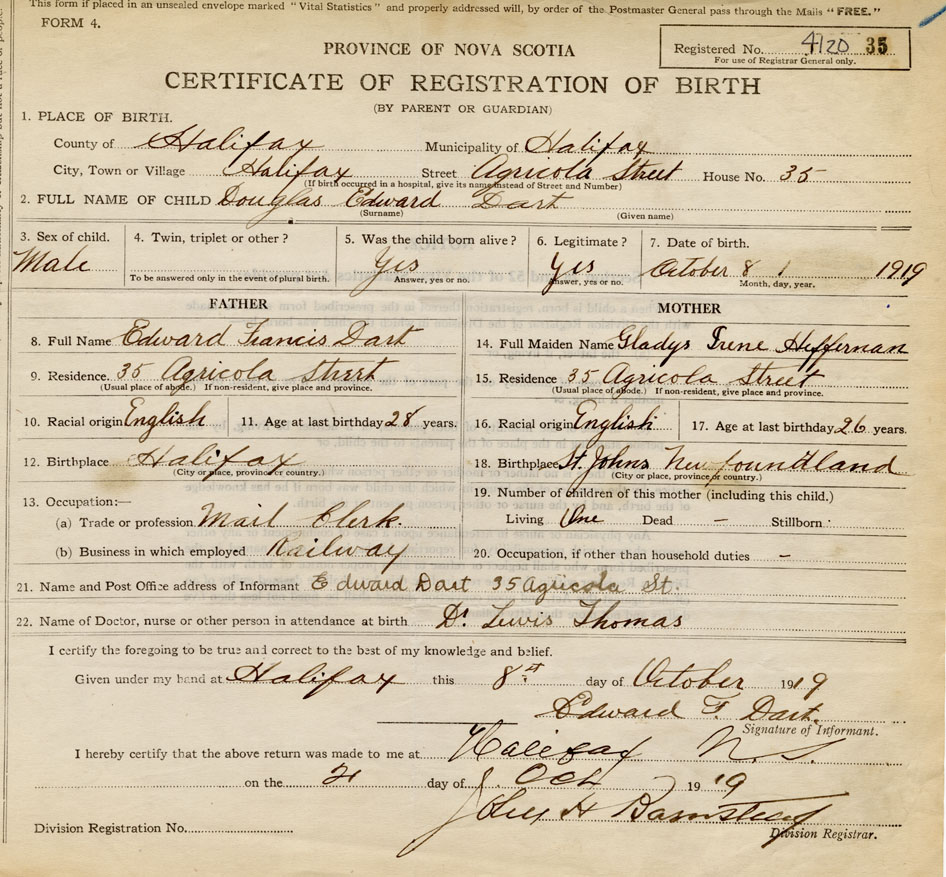 This form if placed in an unsealed envelope marked "Vital Statistics" and properly addressed will, by order of the Postmaster General pass through the Mails "FREE."
FORM 4.
PROVINCE OF NOVA SCOTIA
Registered No. 4120 35
For use of Registrar General only.
CERTIFICATE OF REGISTRATION OF BIRTH
(BY PARENT OR GUARDIAN)
1. PLACE OF BIRTH.
County of Halifax Municipality of Halifax
City, Town or Village Halifax Street Agricola Street House No. 35
(If birth occurred in a hospital, give its name instead of Street and Number)
2. FULL NAME OF CHILD Douglas Edward Dart
(Surname) (Given name)
3. Sex of child. Male
4. Twin, triplet or other?
To be answered only in the event of plural birth.
5. Was the child born alive? Yes
Answer, yes or no.
6. Legitimate? Yes
Answer, yes or no.
7. Date of birth.
October 8 1919
Month, day, year.
FATHER
8. Full Name Edward Francis Dart
9. Residence. 35 Agricola Street
(Usual place of abode.) If non-resident, give place and province.
10. Racial origin English 11. Age at last birthday 28 years.
12. Birthplace Halifax
(City or place, province or country.)
13. Occupation:—
(a) Trade or profession Mail Clerk.
(b) Business in which employed Railway
MOTHER
14. Full Maiden Name Gladys Irene Heffernan
15. Residence 35 Agricola Street
(Usual place of abode.) If non-resident, give place and province.
16. Racial origin English 17. Age at last birthday 26 years.
18. Birthplace St. Johns Newfoundland
(City or place, province or country.)
19. Number of children of this mother (including this child.)
Living One Dead – Stillborn
20. Occupation, if other than household duties –
21. Name and Post Office address of Informant Edward Dart 35 Agricola St.
22. Name of Doctor, nurse or other person in attendance at birth Dr Lewis Thomas
I certify the foregoing to be true and correct to the best of my knowledge and belief.
Given under my hand at Halifax this 8 day of October 1919
Edward F. Dart.
Signature of Informant.
I hereby certify that the above return was made to me at Halifax N.S.
on the 21 day of Oct 1919
John H Barnstead
Division Registrar.
Division Registration No.